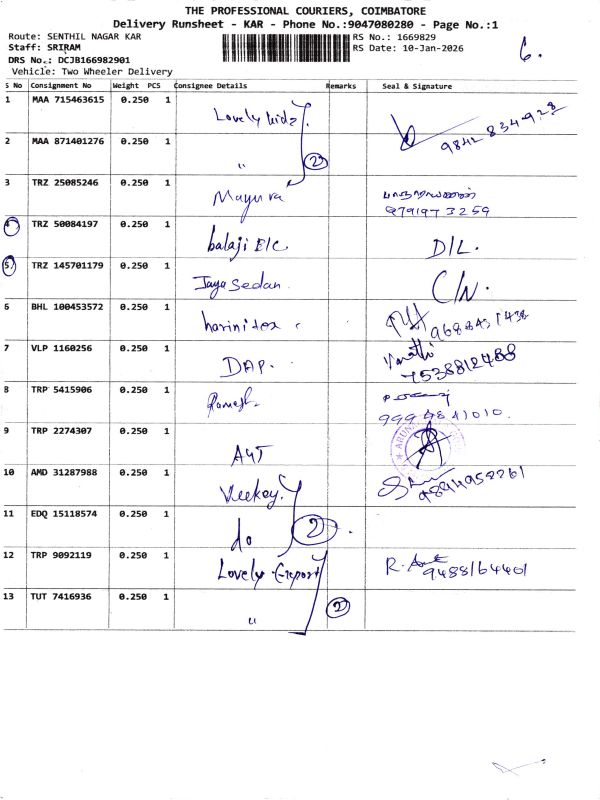 THE PROFESSIONAL COURIERS, COIMBATORE
Delivery Runsheet - KAR - Phone No.:9047080280 - Page No.:1
Route: SENTHIL NAGAR KAR RS No.: 1669829
Staff: SRIRAM RS Date: 10-Jan-2026 6.
DRS No.: DCJB166982901
Vehicle: Two Wheeler Delivery
S No Consignment No Weight PCS Consignee Details Remarks Seal & Signature
1 MAA 715463615 0.250 1 Lovely kidz 9842 834928
2 MAA 871401276 0.250 1 " 2
3 TRZ 25085246 0.250 1 Mayura
9791973259
4 TRZ 50084197 0.250 1 balaji E/C. D/L.
5 TRZ 145701179 0.250 1 Jaya Sedan. C/N.
6 BHL 100453572 0.250 1 harini tex
7 VLP 1160256 0.250 1 DAP. 7538812488
8 TRP 5415906 0.250 1 Ramesh.
9 TRP 2274307 0.250 1 A4T
10 AMD 31287988 0.250 1 Veekay. 9894958261
11 EDQ 15118574 0.250 1 do 2
12 TRP 9092119 0.250 1 Lovely Export R. 9488164401
13 TUT 7416936 0.250 1 " 2